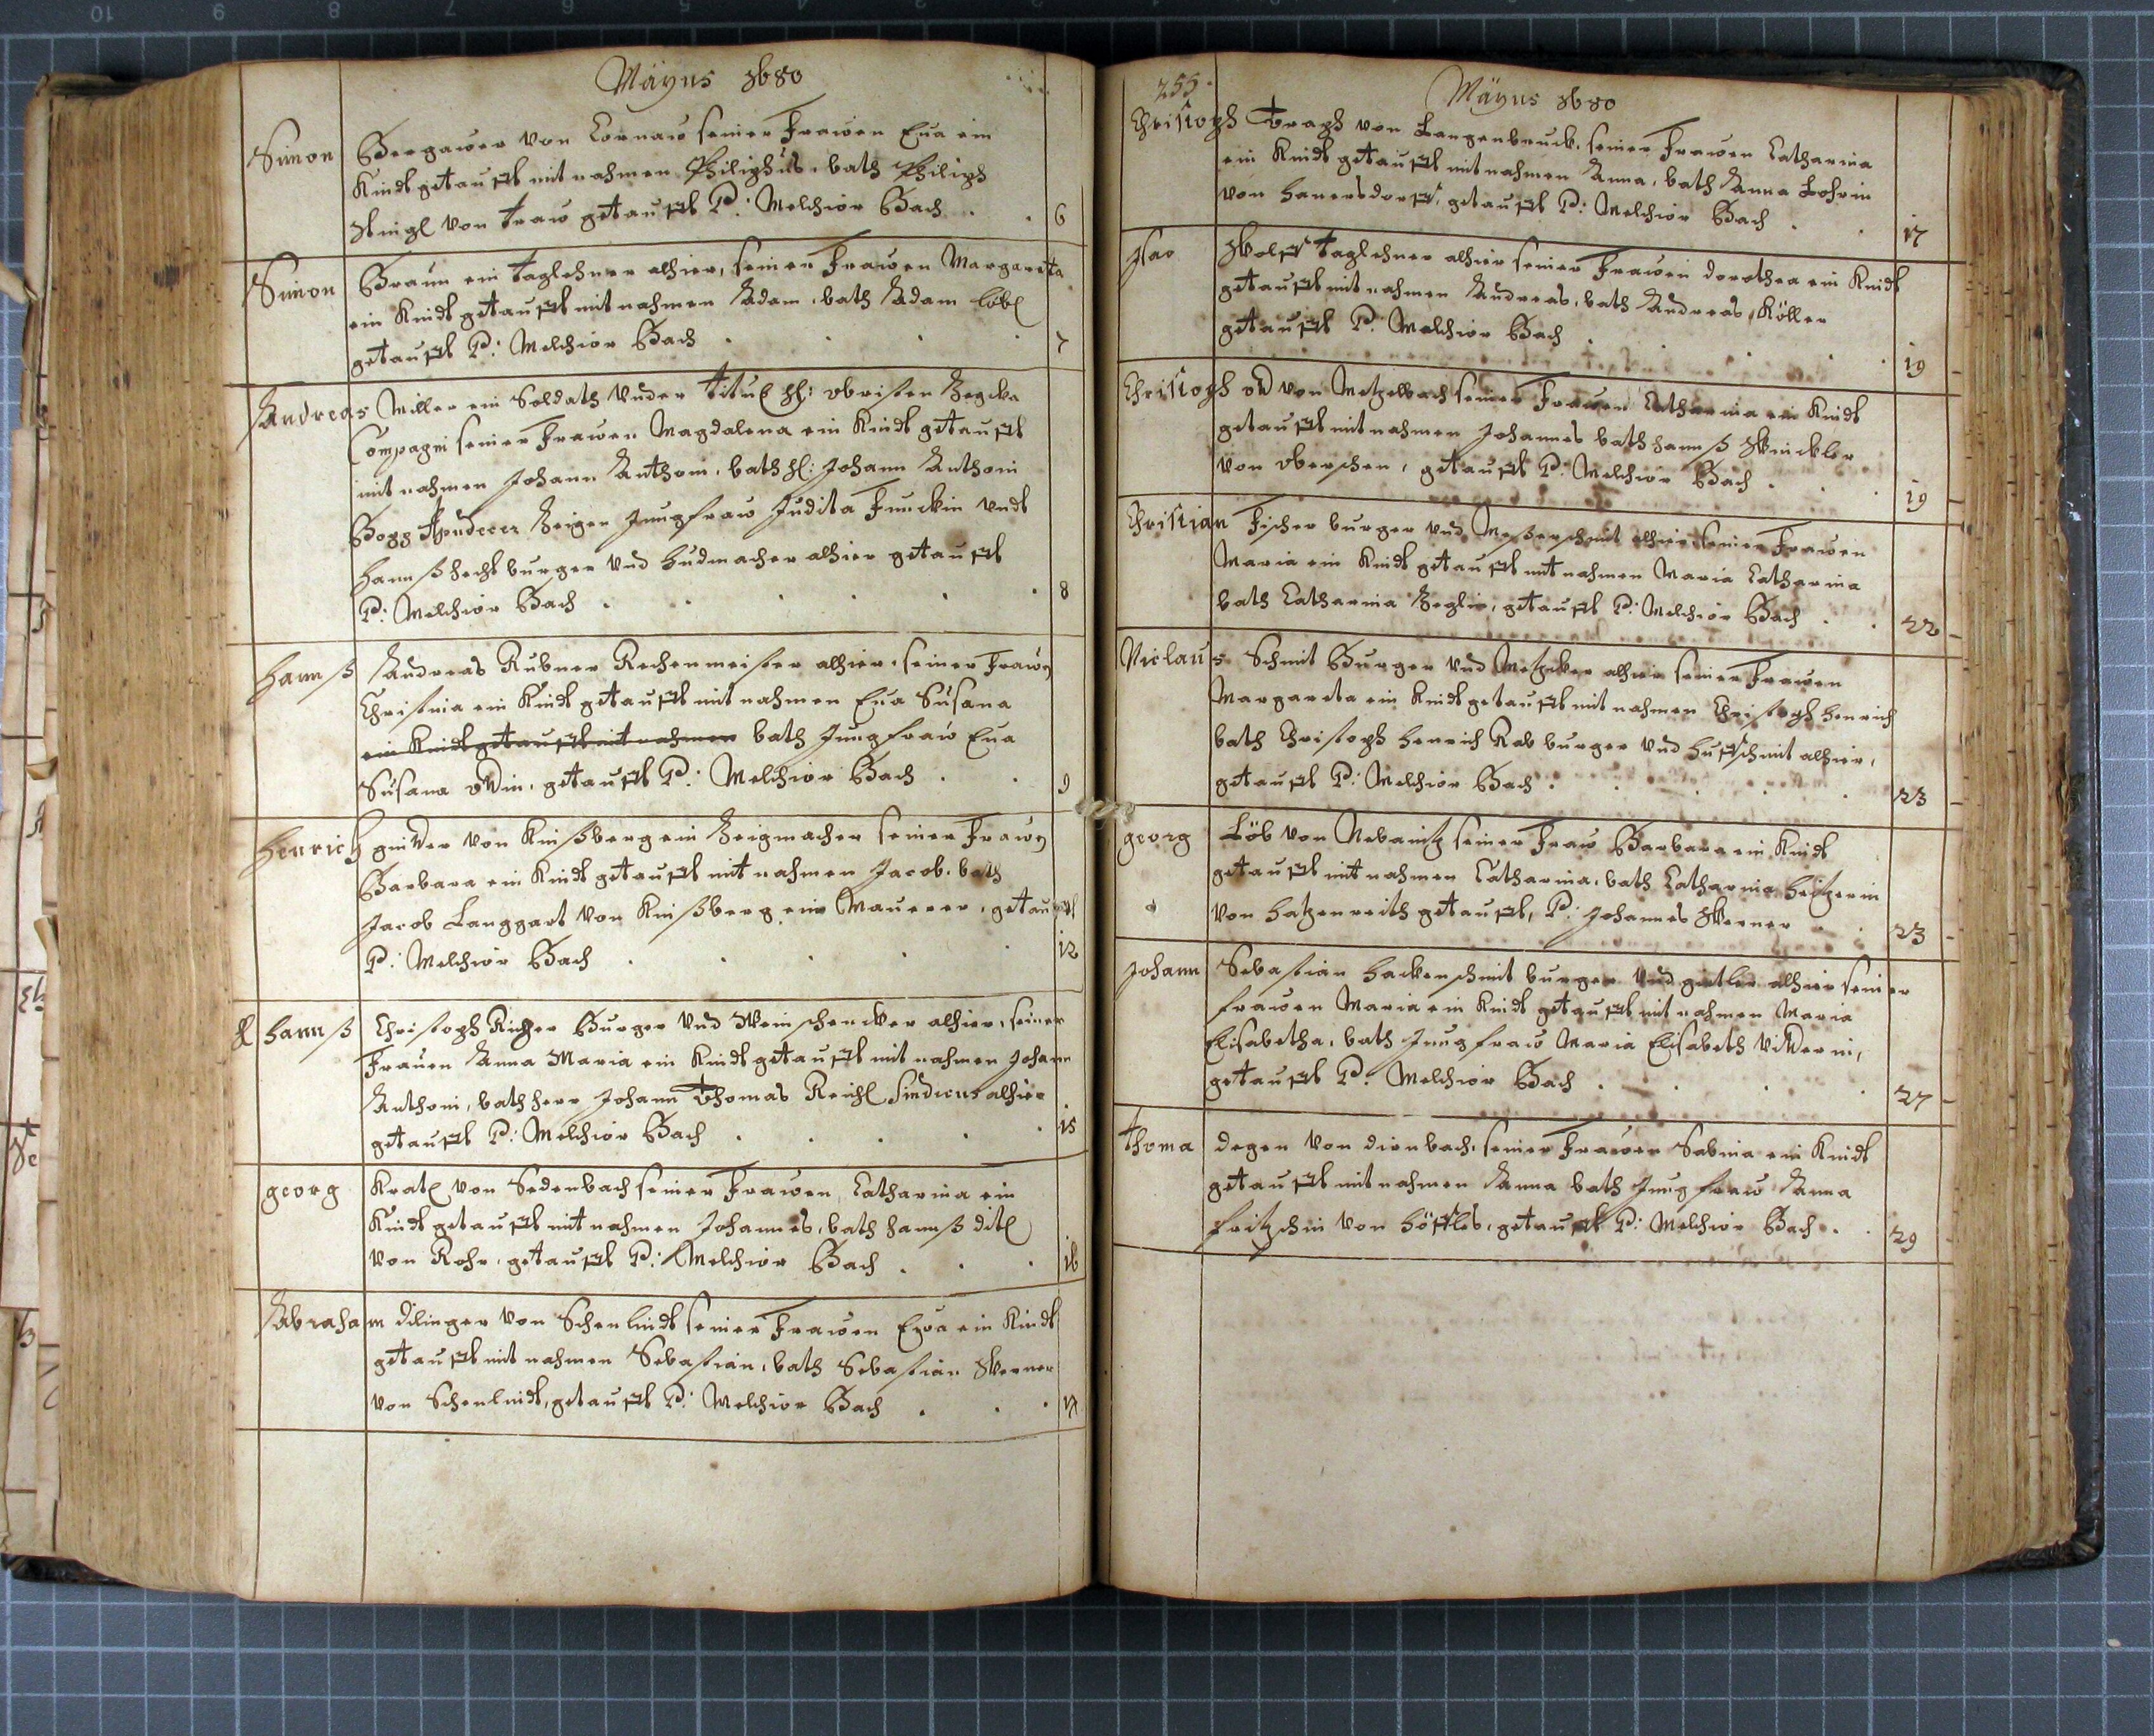 Mäyus 1680
Simon Bergawer von Cornaw seiner Frawen Eua ein
Kindt getaufft mit nahmen Philiphus, bath Philiph
von getaufft P: Melchior Bach . . 6
Simon Braun ein taglehner alhier, seiner Frawen Margareta
ein Kindt getaufft mit nahmen Adam, bath Adam Löbl
getaufft P: Melchior Bach . . . . 7
Andreas Miller ein Soldath Vnder titul H: obristen
Compagni seiner Frawen Magdalena ein Kindt getaufft
mit nahmen Johann Anthoni, bath H: Johann Anthoni
Jungfraw Judita Funckin Vndt
Hannß Hecht burger Vnd hudmacher alhier getaufft
P: Melchior Bach . . . . . . 8
Hannß Andreas Rubner Rechenmeister alhier, seiner Frawen
Christina ein Kindt getaufft mit nahmen Eua Susana
ein Kindt getaufft mit nahmen bath Jungfraw Eua
Susana getaufft P: Melchior Bach . . 9
Henrich von Kinßberg ein Zeigmacher seiner Frawen
Barbara ein Kindt getaufft mit nahmen Jacob, bath
Jacob Langgart von Kinßberg ein Maurer, getaufft
P: Melchior Bach . . . . 12
Hannß Christoph Burger Vnd Weinschencker alhier, seiner
Frauen Anna Maria ein Kindt getaufft mit nahmen Johann
Anthoni, bath herr Johann Thomas Reichl Sindicus alhier
getaufft P: Melchior Bach . . . . 15
georg von Sedenbach seiner Frawen Catharina ein
Kindt getaufft mit nahmen Johannes, bath Hannß ditl
von Rohr, getaufft P: Melchior Bach . . . 16
Abraham dilinger von Schenlindt seiner Frawen Eva ein Kindt
getaufft mit nahmen Sebastian, bath Sebastian Werner
von Schenlindt, getaufft P: Melchior Bach . . . 17
255. Mäyus 1680
Christoph von Langenbruck, seiner Frawen Catharina
ein Kindt getaufft mit nahmen Anna, bath Anna Lohrin
von Hanersdorff, getaufft P: Melchior Bach . . 17
Isac Wolff taglehner alhier seiner Frawen dorothea ein Kindt
getaufft mit nahmen Andreas, bath Andreas Köller
getaufft P: Melchior Bach . . . . . 19
Christoph von seiner Frawen Catharina ein Kindt
getaufft mit nahmen Johannes bath Hannß Winckler
von getaufft P: Melchior Bach . . . 19
Christian Fischer burger Vnd Messerschmit alhier seiner Frawen
Maria ein Kindt getaufft mit nahmen Maria Catharina
bath Catharina getaufft P: Melchior Bach . . 22
Niclaus Schmit Burger Vnd Metzcker alhier seiner Frawen
Margareta ein Kindt getaufft mit nahmen Christoph Henrich
bath Christoph Henrich Rab burger Vnd huffschmit alhier,
getaufft P: Melchior Bach . . . . . 23
georg Löb von Nebanitz seiner Fraw Barbara ein Kindt
getaufft mit nahmen Catharina, bath Catharina
von Hatzenreith getaufft, P: Johannes Werner . . 23
Johann Sebastian Hackenschmit burger Vnd girtler alhier seiner
Frawen Maria ein Kindt getaufft mit nahmen Maria
Elisabetha, bath Jungfraw Maria Elisabeth
getaufft P: Melchior Bach . . . . 27
Thoma degen von dirnbach, seiner Frawen Sabina ein Kindt
getaufft mit nahmen Anna bath Jungfraw Anna
Fritzschin von Höfles, getaufft P: Melchior Bach . . 29